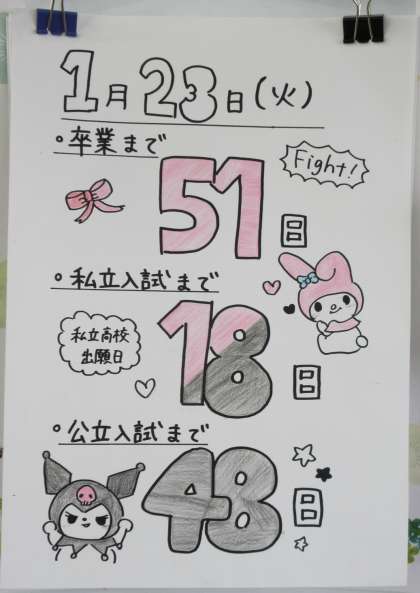 1月23日(火)
°卒業まで
Fight!
51日
°私立入試まで
私立高校
出願日
18日
°公立入試まで
48日